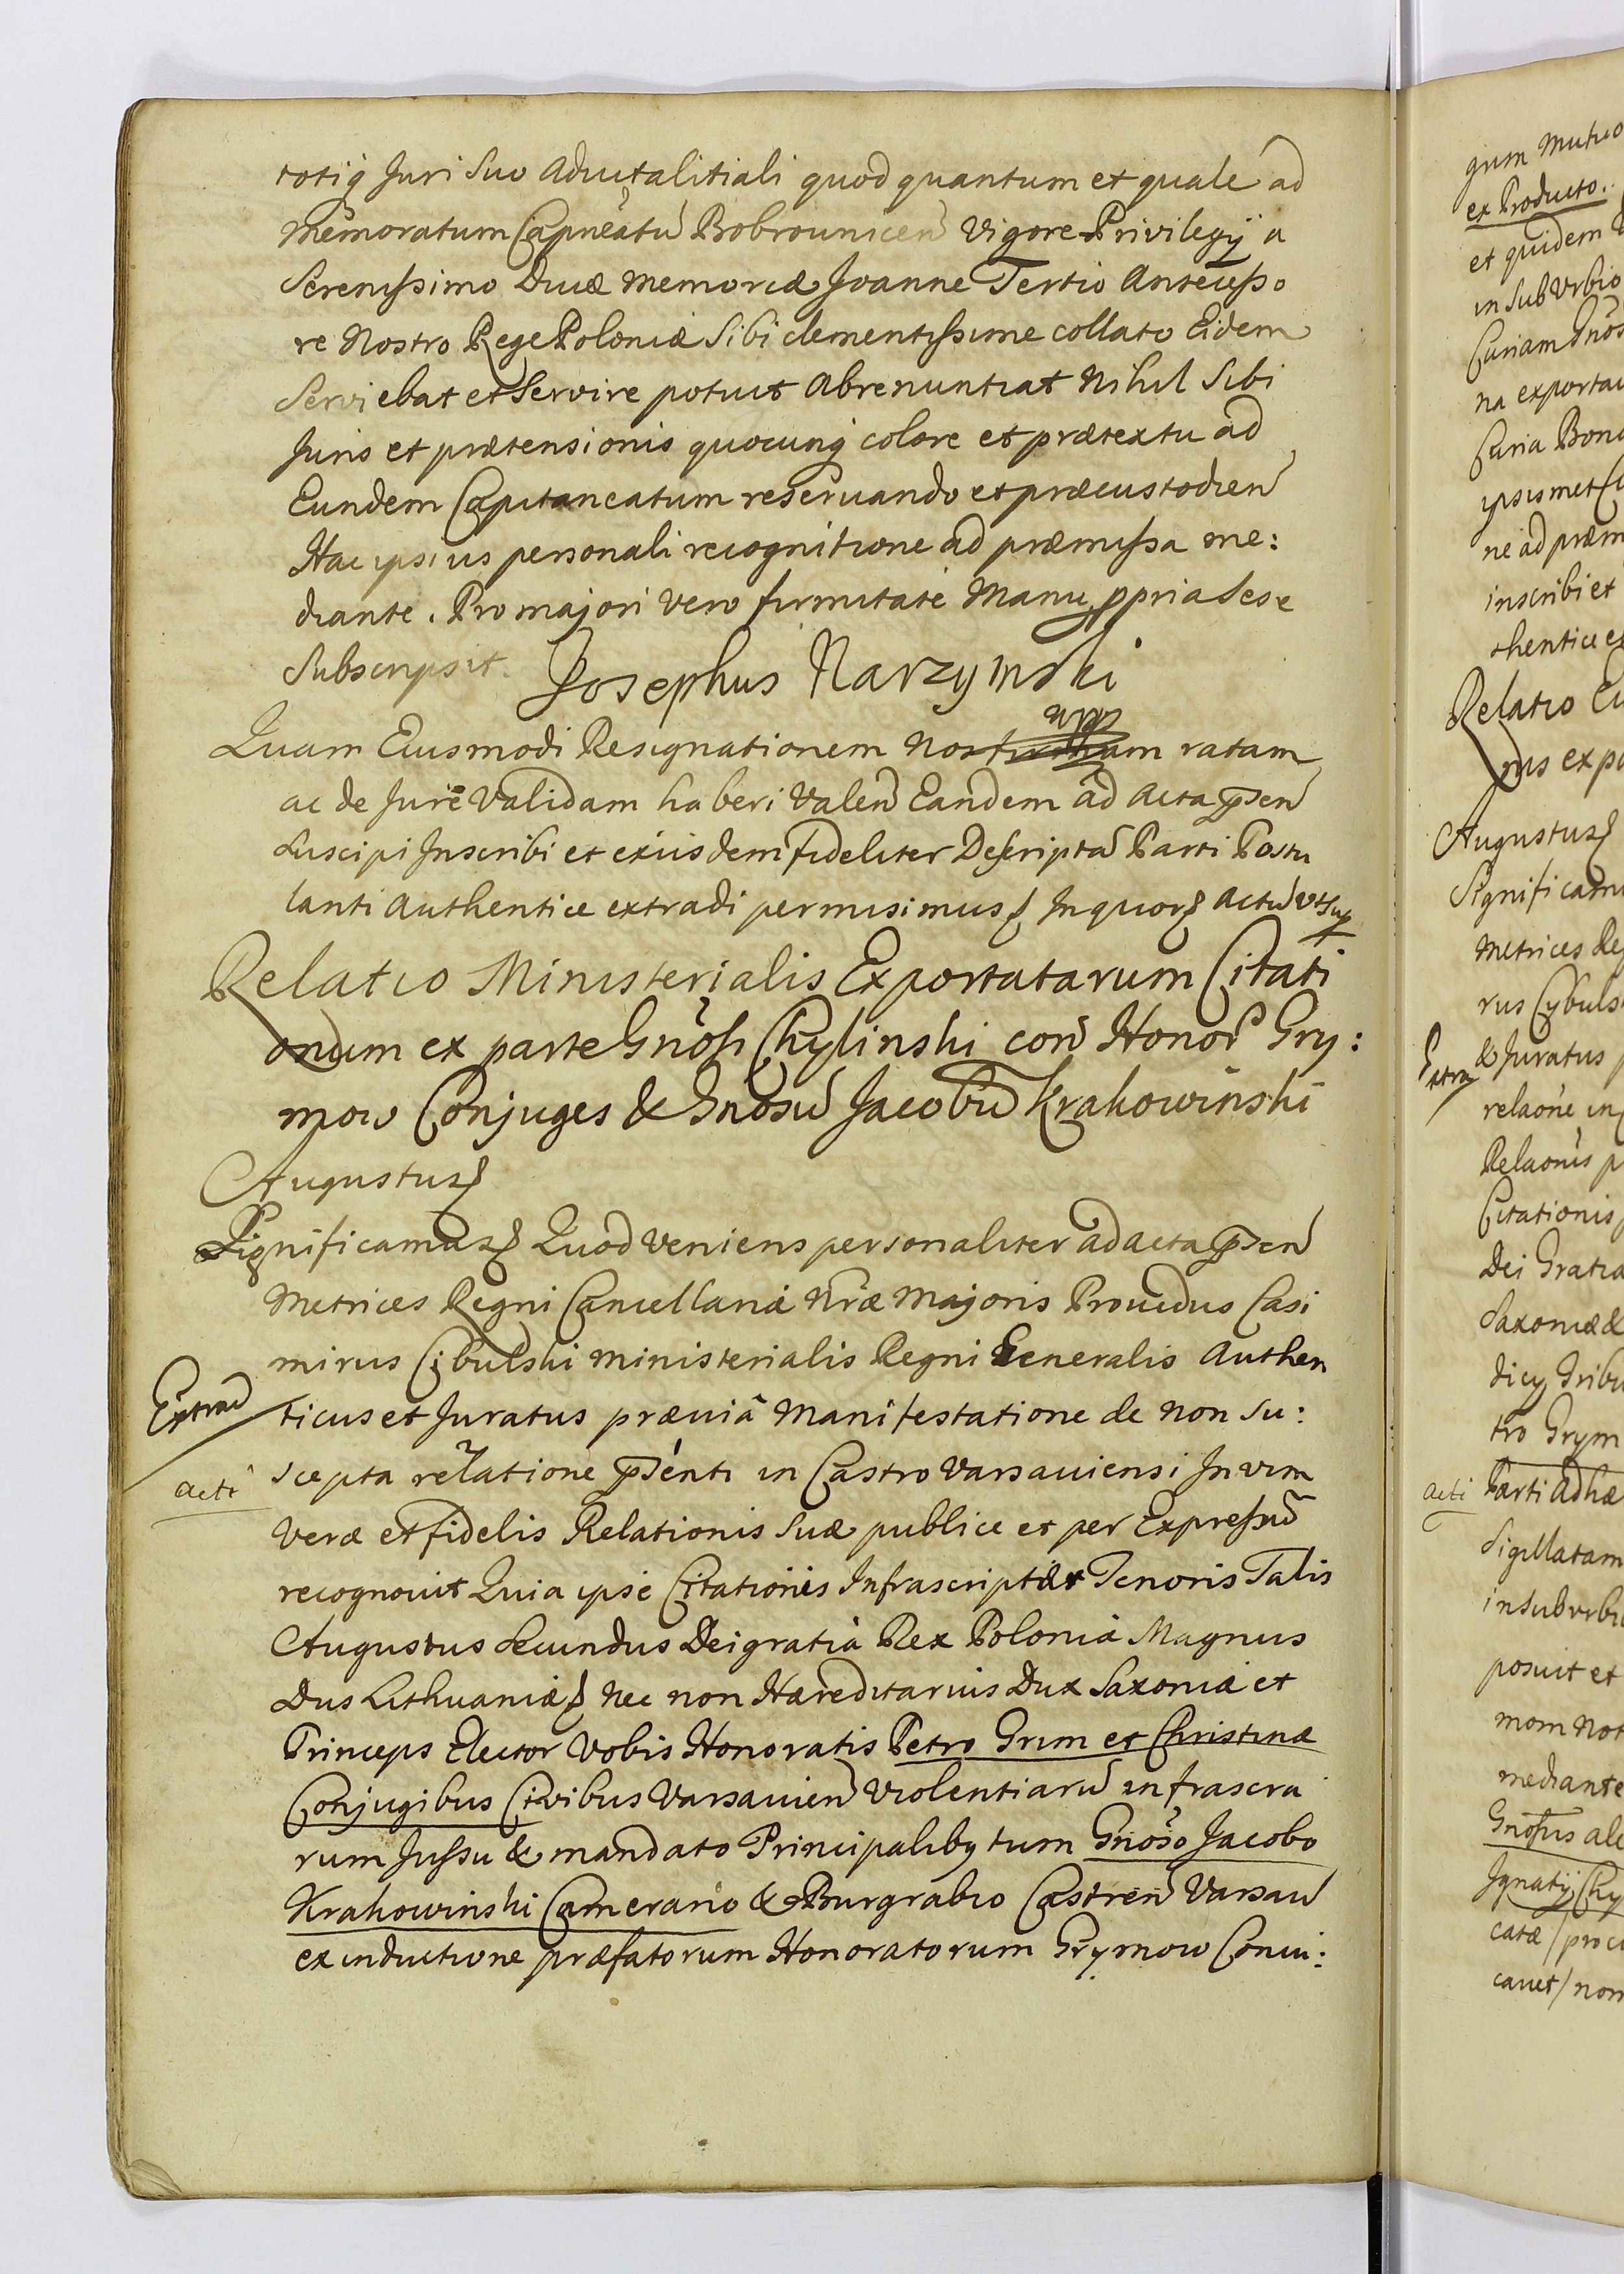 totiq Juri Suo Advitalitiali quod quantum et quale ad
Memoratum Capneatu Bobrounicen Vigore Privilegÿ a
Serenissimo Divæ Memoriæ Joanne Tertio Antecesso
re Nostro Rege Poloniæ Sibi clementissime collato Eidem
Serviebat et Servire potuit Abrenuntiat Nihil Sibi
Juris et prætensionis quocunq colore et prætextu ad
Eundem Capitaneatum reservando et præcustodien
Hac ipsius personali recognitione ad præmissa me:
diante. Pro majori vero firmitate Manu ppria Sese
Subscripsit. Josephus Narzymski
Quam Eiusmodi Resignationem ratam
ac de Jure Validam haberi Valen Eandem ad Acta psen
Suscipi Inscribi et eiusdem fideliter Descripta Parti Postu
lanti Authentice extradi permisimus In quor Actu ut Sup
Relatio Ministerialis Exportatarum Citati
onum ex parte Gnosi Chylinski con Honor Gry:
mow Conjuges & Gnosu Jacobu Krakowinski
Augustus
Significamus Quod Veniens personaliter ad acta psen
Metrices Regni Cancellariæ Nræ Majoris Providus Casi
mirus Cibulski Ministerialis Regni Generalis Authen
Extrad
ticus et Juratus præviâ Manifestatione de non Su:
acti
scepta relatione psenti in Castro Varsaviensi In vim
Veræ et fidelis Relationis Suæ publice et per Expressu
recognovit Quia ipse Citationes Infrascriptæ Tenoris Talis
Augustus Secundus Dei gratia Rex Poloniæ Magnus
Dus Lithuaniæ Nec non Hæreditarius Dux Saxoniæ et
Princeps Elector Vobis Honoratis Petro Grim et Christinæ
Conjugibus Civibus Varsavien Violentiaru infrascra
rum Jussu & mandato Principalibq tum Gnoso Jacobo
Krakowinski Camerario & Burgrabio Castren Varsav
ex inductione præfatorum Honoratorum Grymow Convi:
grum mutuo
ex Producto.
et quidem
in SubVrbio
Curiam Gnos
na exportau
Curia Bono
ipsismet
ne ad præm
inscribi et
thentice
Relatio
nis
Augustus
Significamu
Metrices
rus Cybuls
Extra
& Juratus
relaone in
Relaonis
Citationis
Dei Gratia
Saxoniæ &
dicq Tribu
tro Grym
acti
Parti Adhæ
Sigillatam
in Suburbi
posuit et
mom not
mediante
Gnosus
Ignatÿ Chy
catæ / pro
cavet / non